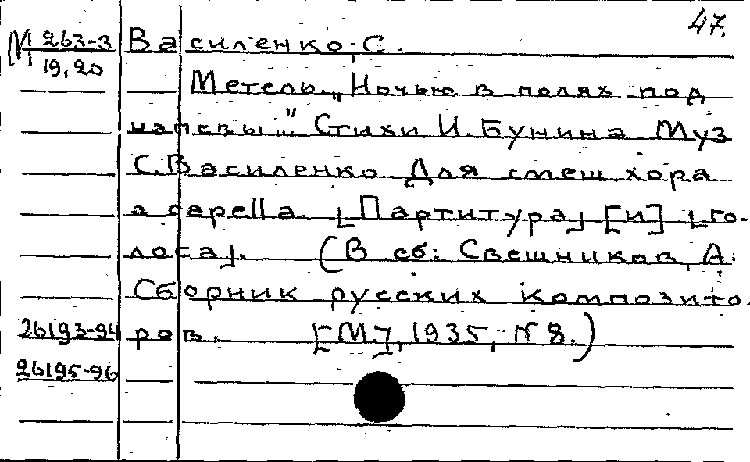 47.
М 263-3 Василенко, С.
19,20
Метель „Ночью в полях под
напевы..." Стихи И. Бунина Муз
С. Василенко Для смеш хора
a capella [Партитура] [и] [го-
лоса]. (В сб: Свешников, А.
Сборник русских композито.
26193-94 ров. [М.], 1935, N 8.)
26195-96